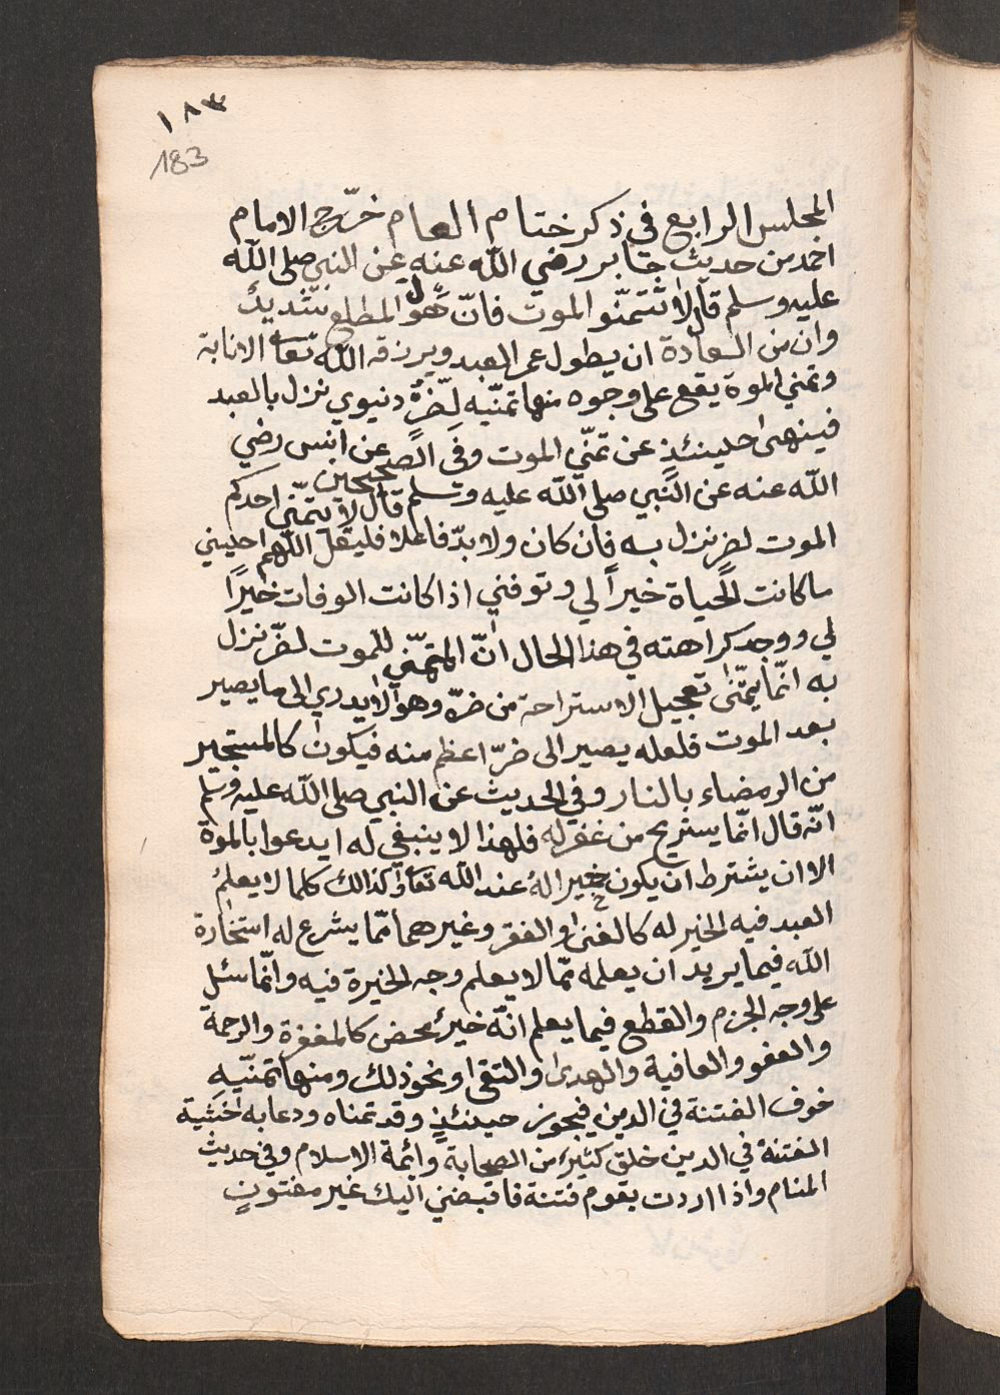 ١٨٣
183
المجلس الرابع في ذكر ختام العام خرّج الامام
احمد من حديث جابر رضي الله عنه عن النبي صلى الله
عليه وسلم قال لا تتمنّو الموت فانّ هول المطلع شديد
وان من السعادة ان يطول عمر العبد ويرزقه الله تعا الانابة
وتمني الموة يقع على وجوه منها تمنّيه لضرٍّ دنيوي نزل بالعبد
فينهى حينئذٍ عن تمنّي الموت وفي الصحيحين عن انس رضي
الله عنه عن النّبي صلى الله عليه وسلم قال لا يتمنّي احدكم
الموت لضر نزل به فان كان ولا بدّ فاعلا فليقل اللهم احييني
ما كانت الحياة خيراً لي وتوفني اذا كانت الوفات خيرًا
لي ووجه كراهته في هذا الحال انّ المتمنّي للموت لضرّ نزل
به انّما يتمّنى تعجيل الاستراحة من ضرّه وهو لا يدري الى ما يصير
بعد الموت فلعله يصير الى ضرّ اعظم منه فيكون كالمستجير
من الرمضاء بالنار وفي الحديث عن النبي صلى الله عليه وسلم
انّه قال انّما يستريح من غفر له فلهذا لا ينبغي له ا يدعوا بالموة
الا ان يشترط ان يكون خيرا لهُ عند الله تعا وكذالك كلما لا يعلمُ
العبد فيه الخير له كالغنى والفقر وغيرهما ممّا يشرع له استخارة
الله فيما يريد ان يعلمه ممّا لا يعلم وجه الخيرة فيه وانّما سئل
على وجه الجزم والقطع فيما يعلم انّه خيرٌ محض كالمغفرة والرحمة
والعفو والعافية والهدى والتقى ونحو ذلك ومنها تمنّيه
خوف الفتنة في الدين فيجوز حينئذٍ وقد تمناه ودعا به خشية
الفتنة في الدين خلق كثير من الصحابة وائمة الاسلام وفي حديث
المنام واذا اردت بقوم فتنة فاقبضني اليك غير مفتونٍ